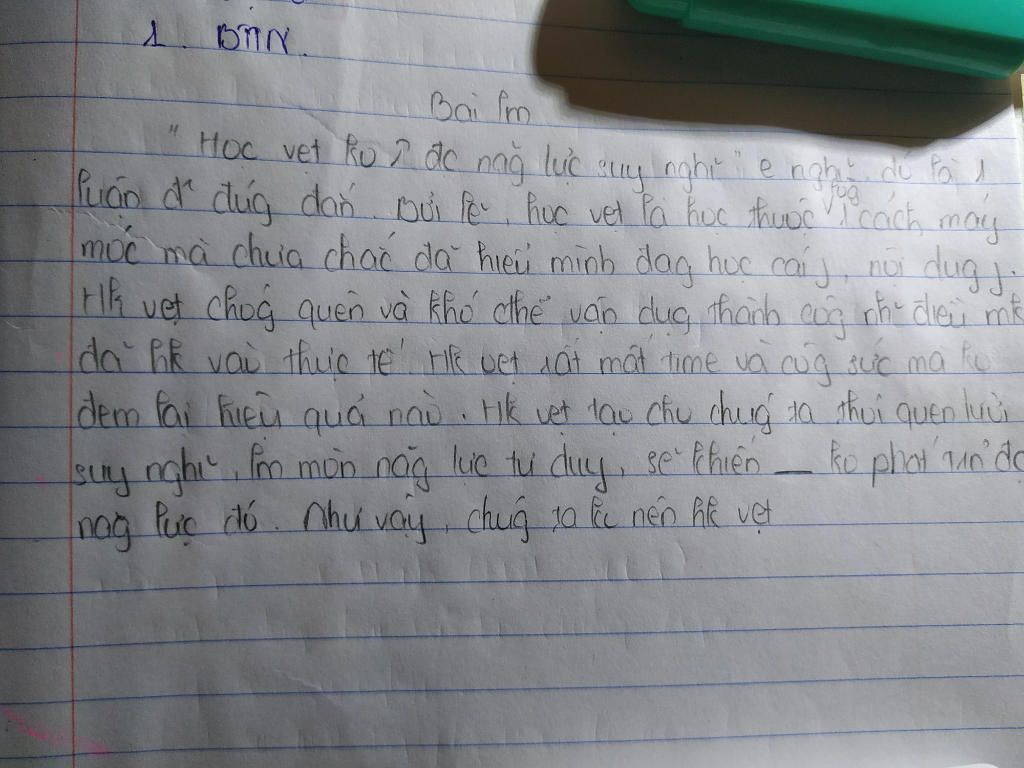 1. ĐTN.
Bài lm
"Học vẹt ko ↗ đc năg lực suy nghĩ" e nghĩ đó là 1
luận đ' đúg đắn. Bởi lẽ, học vẹt là học thuộc lòg 1 cách máy
móc mà chưa chắc đã hiểu mình đag học cái j, nội dug j.
Hk vẹt chóg quên và khó cthể vận dụg thành côg nh~ điều mk
đã hk vào thực tế. Hk vẹt rất mất time và côg sức mà ko
đem lại hiệu quả nào. Hk vẹt tạo cho chúg ta thói quen lười
suy nghĩ, lm mòn năg lực tư duy, sẽ khiến __ ko phát triển đc
năg lực đó. Như vậy, chúg ta ko nên hk vẹt